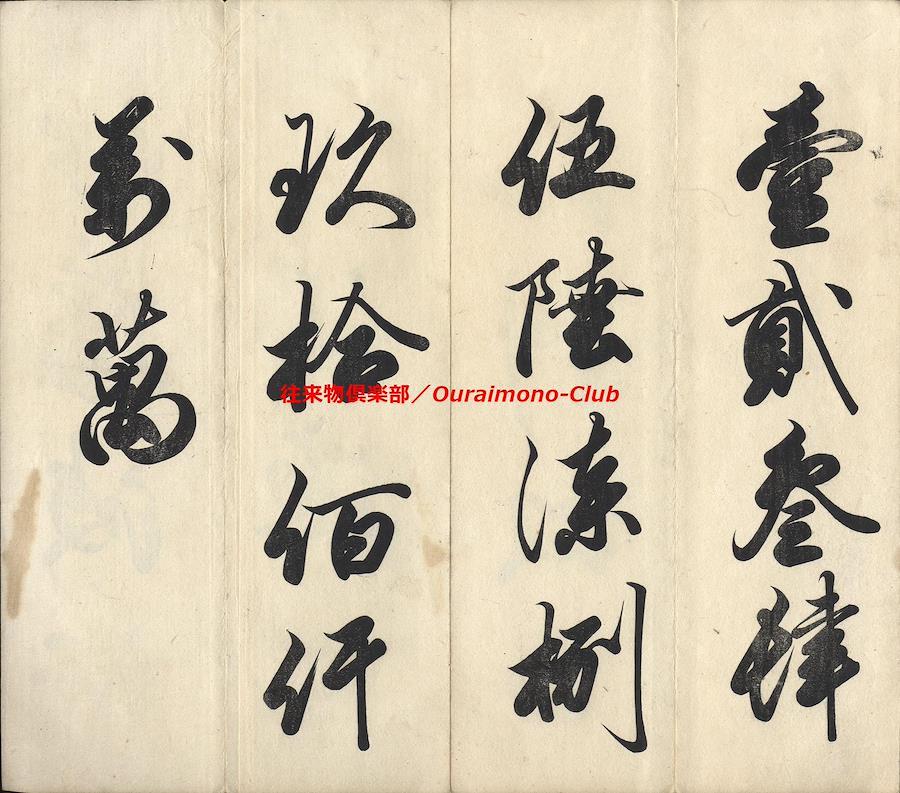 壹貳叄肆
伍陸漆捌
玖拾佰仟
万萬
往来物倶楽部／Ouraimono-Club